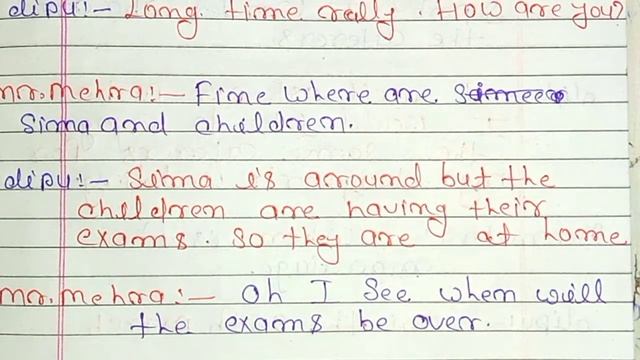 dipu:- Long time rally. How are you?
mr.mehra:- Fine where are
Sima and children.
dipu:- Sima is arround but the
children are having their
exams. so they are at home
mr.mehra:- Oh I See when will
the exams be over.